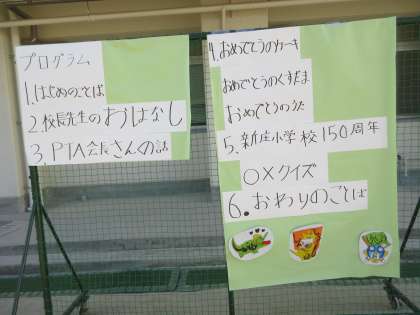 プログラム
1.はじめのことば
2.校長先生のおはなし
3.PTA会長さんの話
4.おめでとうのケーキ
おめでとうのくすだま
おめでとうのうた
5.新庄小学校150周年
○×クイズ
6.おわりのことば